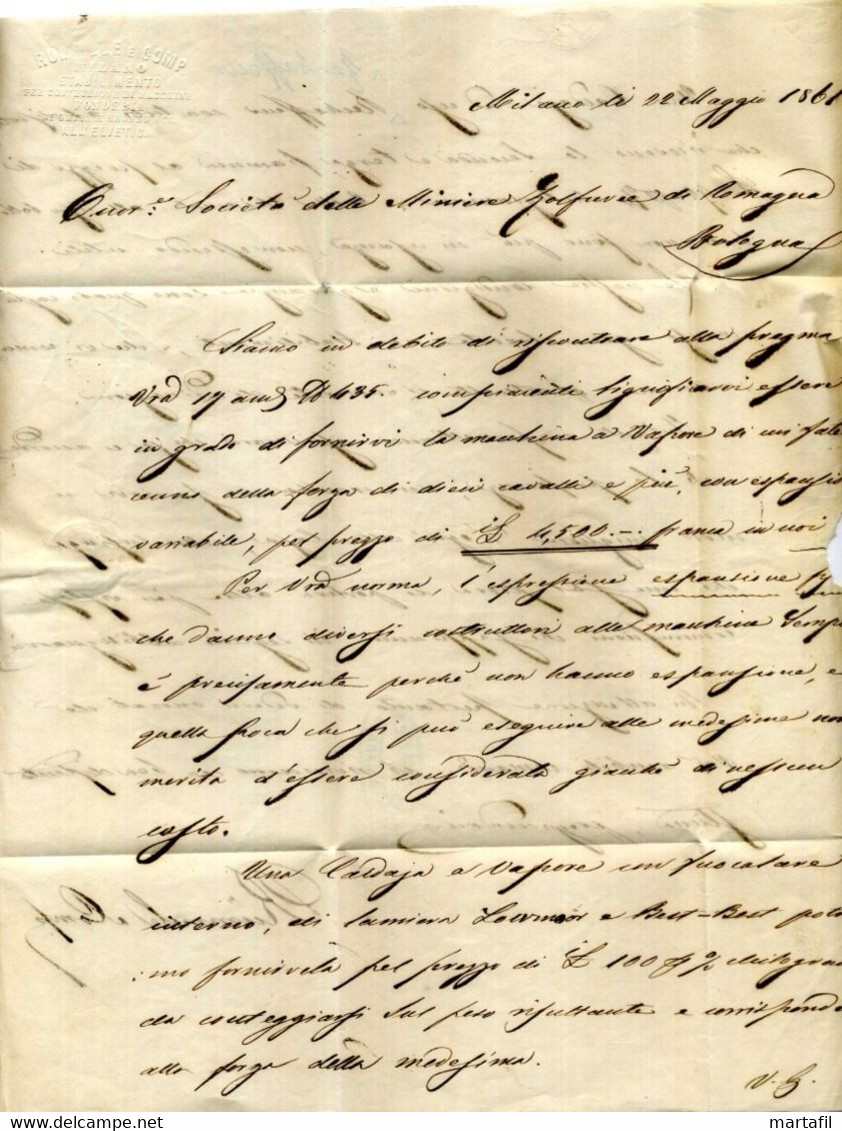 E COMP
MILANO
STABILIMENTO
PER COSTRUZIONE DI MACCHINE
FONDERIA
ALL'ELVETICA
Milano li 22 Maggio 1861
Onor.e Società delle Miniere Zolfuree di Romagna
Bologna
Siamo in debito di riscontrare alla pregma
Vra 17 and N 435. compiacenti significarvi essere
in grado di fornirvi la macchina a Vapore di
della forza di dieci cavalli e più, con espansio
variabile, pel prezzo di £ 4,500.-. franca in noi
Per Vra norma, l'espressione espansione
che danno diversi costruttori alle macchine Sempl
è precisamente perchè non hanno espansione, e
quella poca che si può eseguire alle medesime non
merita d'essere considerata giacchè di nessun
costo.
Una Caldaja a Vapore con fuocolare
interno, di lamiera Lowmoor e Best-Best pots
:mo fornirvela pel prezzo di £ 100 % Kilogra
da conteggiarsi sul peso risultante e corrisponde
alla forza della medesima.
V. G.
martafil